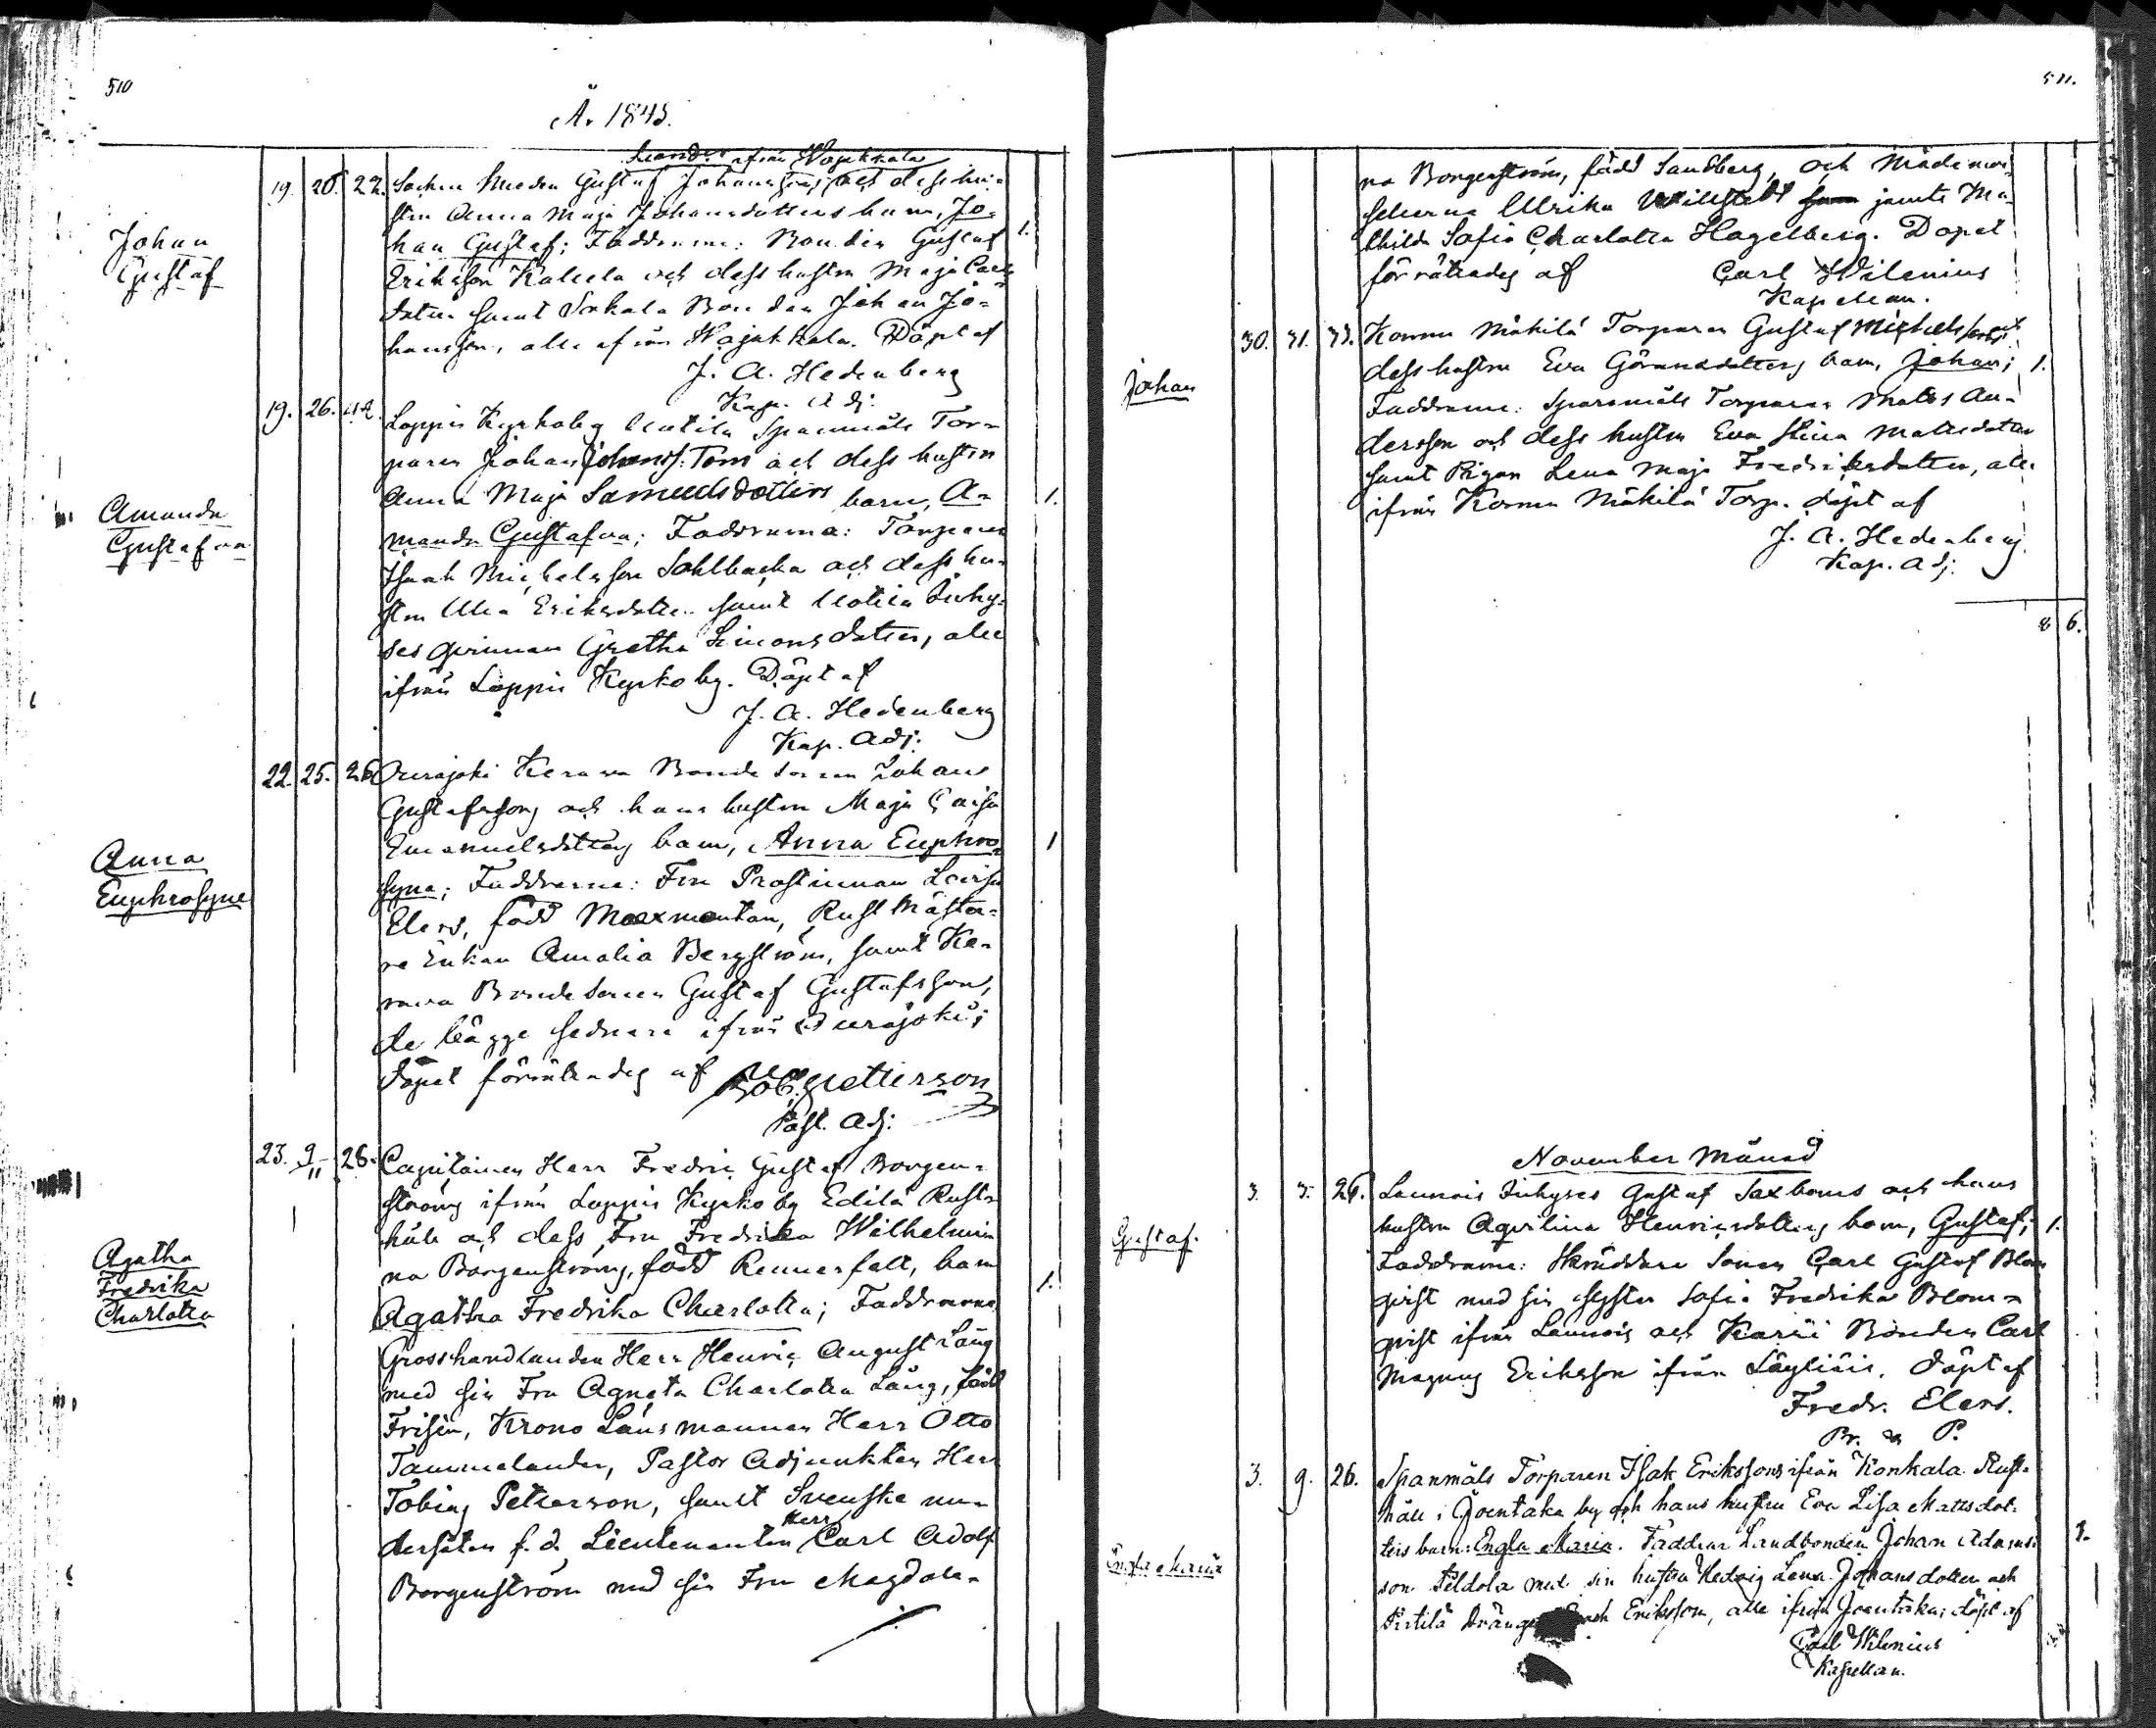 510
År 1843.
Leander ifrån Wojakkala
19. 20. 22. Socken Smeden Gustaf Johansson och dess hu-
stru Anna Maja Johansdotters barn, Jo-
Johan
Gustaf
han Gustaf; Faddrarne: Bonden Gustaf 1.
Eriksson Kalela och dess hustru Maja Carls
dotter samt Bonden Johan Jo-
hansson, alla ifrån Wojakkala. Döpt af
J. A. Hedenberg
Kap. Adj.
19. 26. Loppis Kyrkoby Uotila Spanmåls Tor-
paren Johan Johanss. Toms och dess hustru
Anna Maja Samuelsdotters barn, A- 1.
Amanda
Gustafva
manda Gustafva; Faddrarna: Torparen
Isaak Michelsson Sahlbacka och dess hu-
stru Ulla Eriksdotter samt Uotila Inhy-
ses qvinnan Gretha Simonsdotter, alla
ifrån Loppis Kyrkoby. Döpt af
J. A. Hedenberg
Kap. Adj.
22. 25. 26. Ourajoki Kerava Bonde Sonen Johan
Gustafssons och hans hustru Maja Caisa
Emanuelsdotters barn, Anna Euphro- 1
Anna
Euphrosyne
syne; Faddrarne: Fru Prostinnan Lovisa
Elers, född Maexmontan, Rust Mästa-
re Enkan Amalia Bergström, samt Ke-
rava Bonde Sonen Gustaf Gustafsson,
de bägge sednare ifrån Ourajoki;
Dopet förrättades af Tob. Petterson
Past. Adj:
23. 9/11 26. Capitainen Herr Fredric Gustaf Borgen-
ströms ifrån Loppis Kyrkoby Edilä Rust-
håll och dess Fru Fredrika Wilhelmi-
na Borgenströms, född Rennerfelt, barn 1.
Agatha
Fredrika
Charlotta
Agatha Fredrika Charlotta; Faddrarne
Grosshandlanden Herr Henric August Lång
med sin Fru Agneta Charlotta Lång, född
Frisen, Krono Länsmannen Herr Otto
Tammelander, Pastor Adjunkten Herr
Tobias Petterson, samt Svenske un-
dersåten f.d. Lieutenanten Herr Carl Adolf
Borgenström med sin Fru Magdale-
511.
na Borgenström, född Sandberg, och Mademoi-
sellerna Ulrika Willstedt jemte Ma-
thilda Sofia Charlotta Hagelberg. Dopet
förrättades af Carl Wilenius
Kapellan.
30. 31. 33. Kormu Mäkilä Torparen Gustaf Michelssons och
dess hustru Eva Göransdotters barn, Johan; 1.
Johan
Faddrarne: Spanmåls Torparen Matts An-
dersson och dess hustru Eva Stina Mattsdotter
samt Pigan Lena Maja Fredriksdotter, alla
ifrån Kormu Mäkilä Torp. döpt af
J. A. Hedenberg.
Kap. Adj.
8 6.
November Månad
3. 5. 26. Launois Inhyses Gustaf Saxboms och hans
Gustaf.
hustru Aqvilina Henricsdotters barn, Gustaf; 1.
Faddrarne: Skräddare Sonen Carl Gustaf Blom
qvist med sin syster Sofia Fredrika Blom-
qvist ifrån Launois och Bonden Carl
Magnus Eriksson ifrån Läyliäis. döpt af
Fredr. Elers.
Pr. & P.
3. 9. 26. Spanmåls Torparen Isak Erikssons ifrån Konkala Rust-
håll i Joentaka by och hans hustru Eva Lisa Mattsdot-
Engla Maria
ters barn: Engla Maria. Faddrar Landbonden Johan Adams- 1.
son Peldola med sin hustru Hedvig Lena Johansdotter och
Pertilä Eriksson, alla ifrån Joentaka; döpt af
Carl Wilenius
Kapellan.